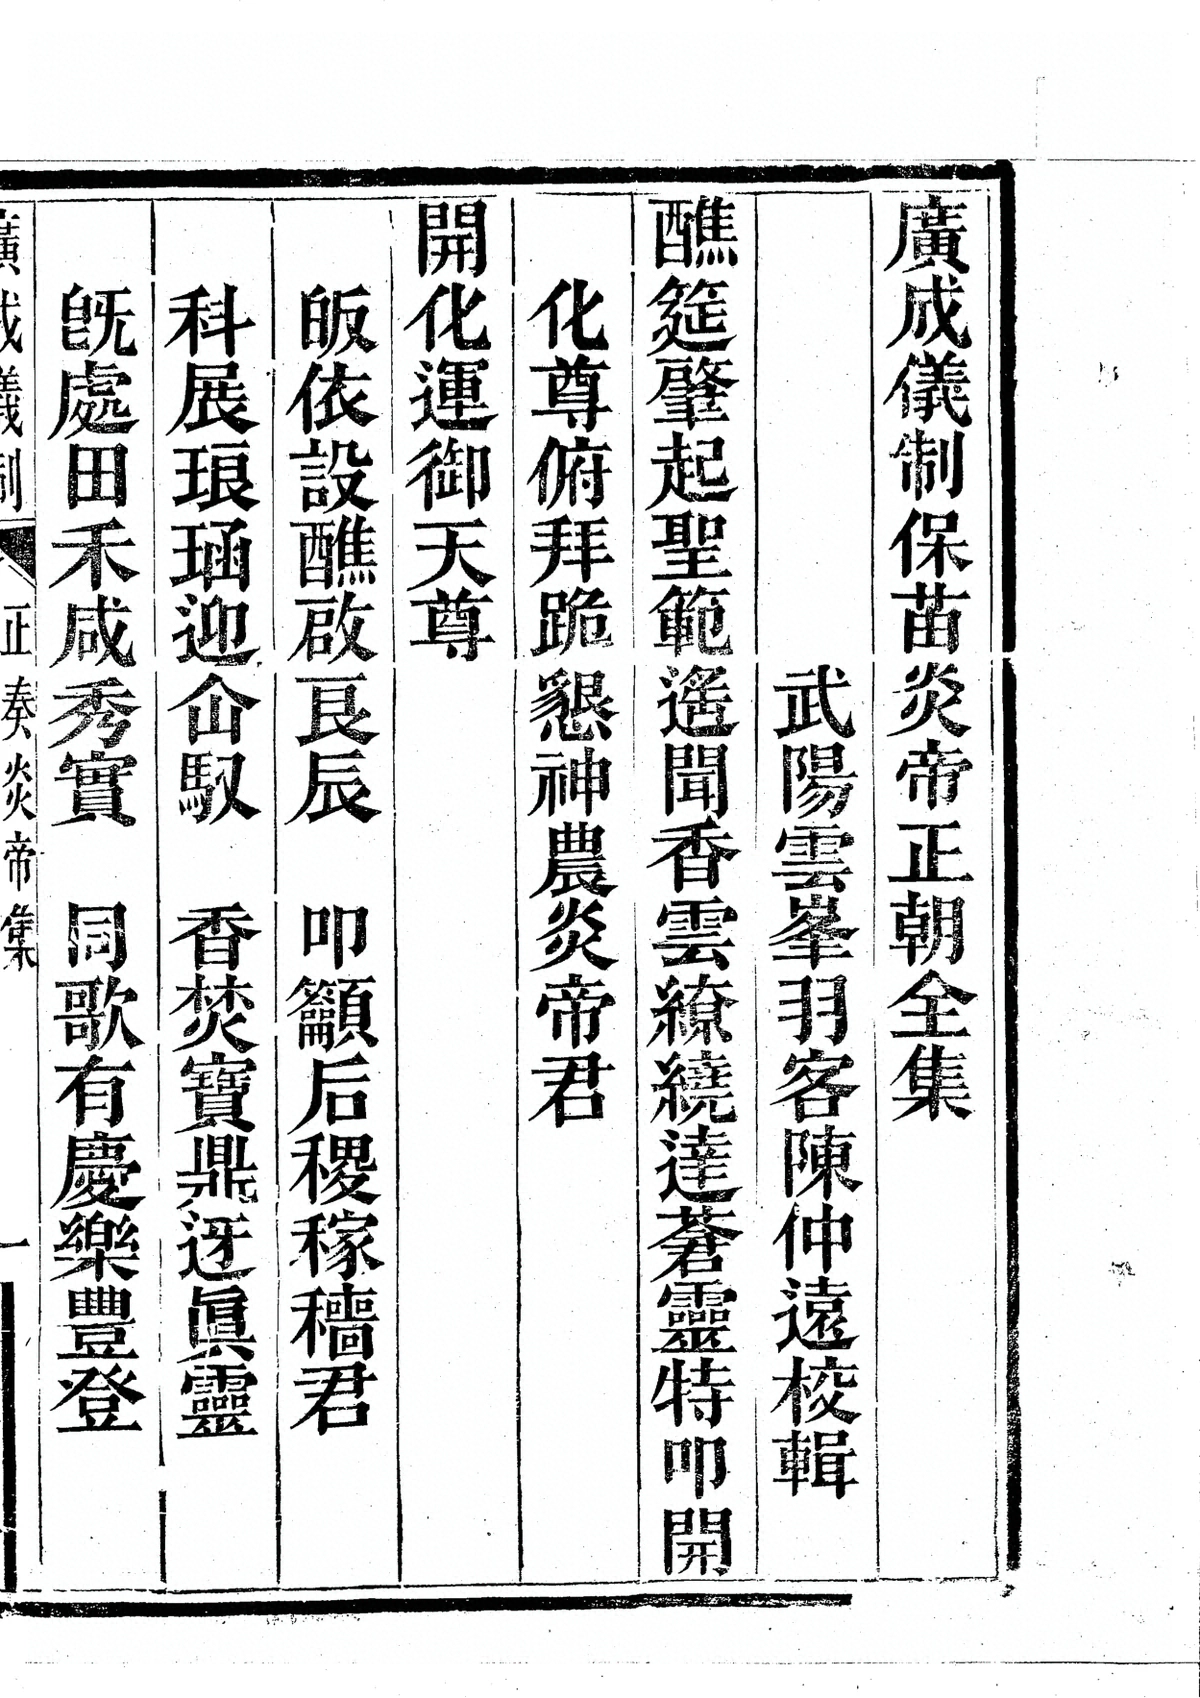 廣成儀制保苗炎帝正朝全集
武陽雲峯羽客陳仲遠校輯
醮筵肇起聖範遙聞香雲繚繞達蒼靈特叩開
化尊俯拜跪懇神農炎帝君
開化運御天尊
皈依設醮啟良辰 叩籲后稷稼穡君
科展琅函迎仚馭 香焚寶鼎迓眞靈
旣處田禾咸秀實 同歌有慶樂豐登
廣成儀制 正奏炎帝集 一